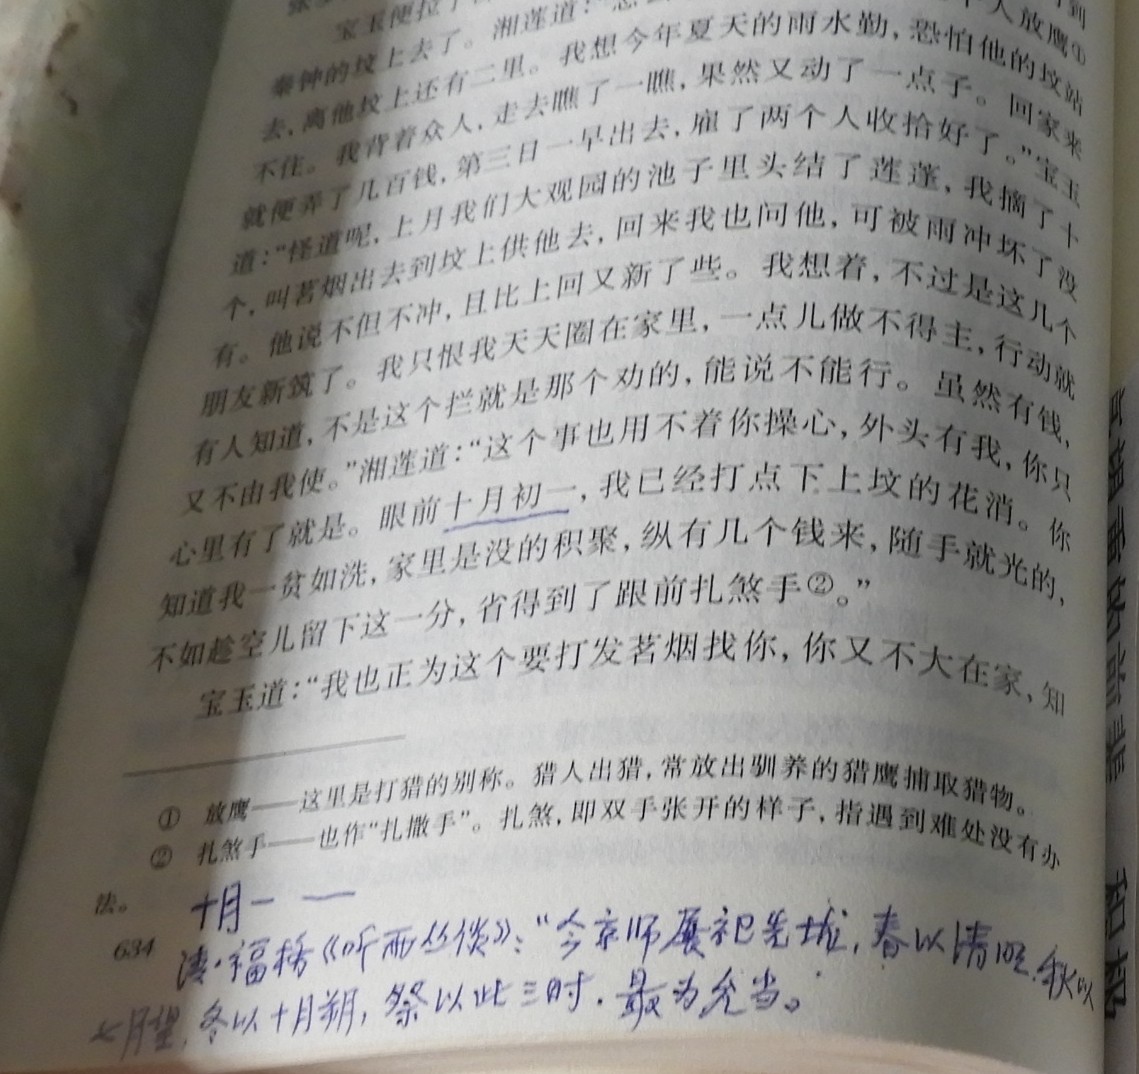 宝玉便拉了
人放鹰①
秦钟的坟上去了。湘莲道：“怎
去，离他坟上还有二里。我想今年夏天的雨水勤，恐怕他的坟站
不住。我背着众人，走去瞧了一瞧，果然又动了一点子。回家来
就便弄了几百钱，第三日一早出去，雇了两个人收拾好了。”宝玉
道：“怪道呢，上月我们大观园的池子里头结了莲蓬，我摘了十
个，叫茗烟出去到坟上供他去，回来我也问他，可被雨冲坏了没
有。他说不但不冲，且比上回又新了些。我想着，不过是这几个
朋友新筑了。我只恨我天天圈在家里，一点儿做不得主，行动就
有人知道，不是这个拦就是那个劝的，能说不能行。虽然有钱，
又不由我使。”湘莲道：“这个事也用不着你操心，外头有我，你只
心里有了就是。眼前十月初一，我已经打点下上坟的花消。你
知道我一贫如洗，家里是没的积聚，纵有几个钱来，随手就光的，
不如趁空儿留下这一分，省得到了跟前扎煞手②。”
宝玉道：“我也正为这个要打发茗烟找你，你又不大在家，知
① 放鹰——这里是打猎的别称。猎人出猎，常放出驯养的猎鹰捕取猎物。
② 扎煞手——也作“扎撒手”。扎煞，即双手张开的样子，指遇到难处没有办
法。
十月一 —
634
清·福格《听雨丛谈》：“今京师展祀先垅，春以清明，秋以
七月望，冬以十月朔，祭以此三时，最为允当。